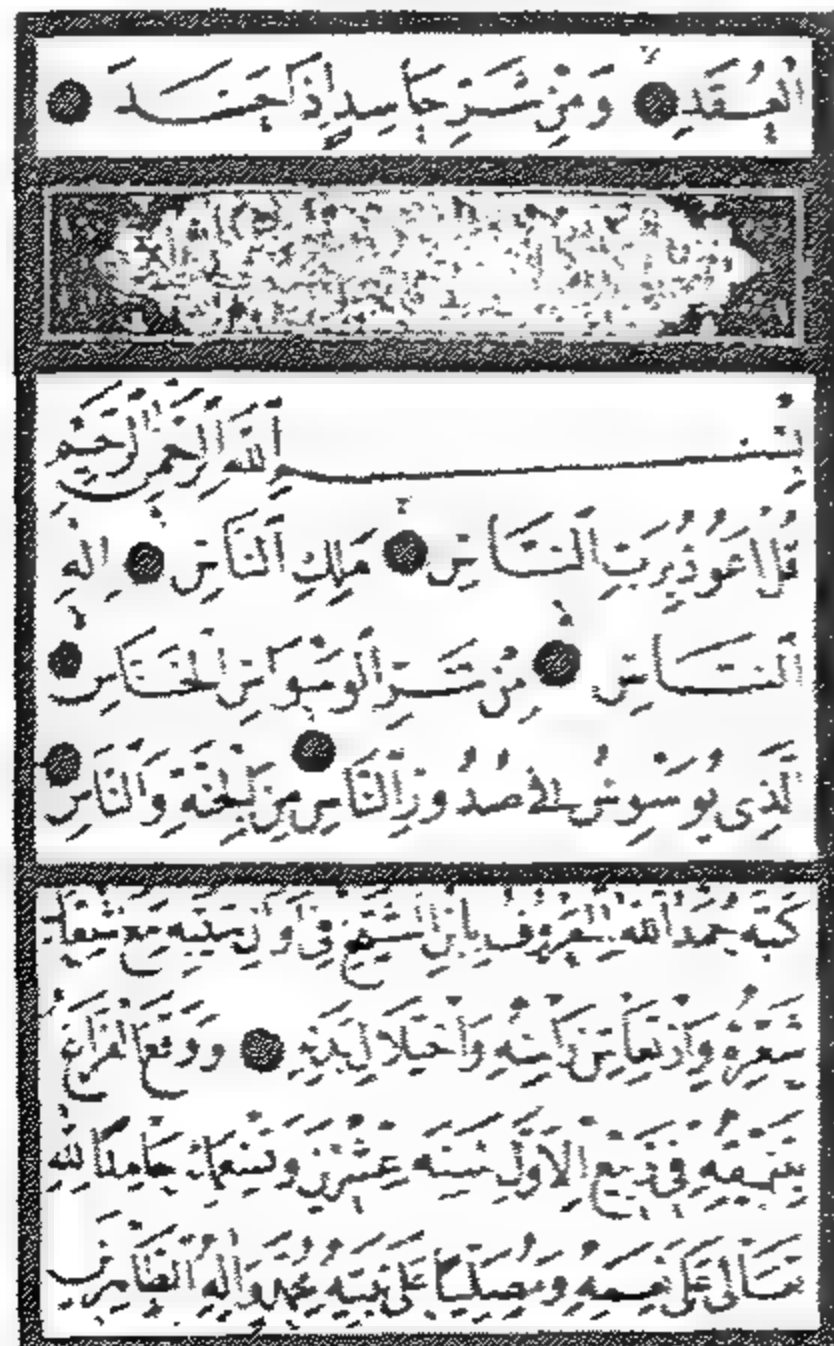 الْعُقَدِ وَمِنْ شَرِّ حَاسِدٍ إِذَا حَسَدَ
بِسْمِ اللَّهِ الرَّحْمَٰنِ الرَّحِيمِ
قُلْ أَعُوذُ بِرَبِّ النَّاسِ مَلِكِ النَّاسِ إِلَٰهِ
النَّاسِ مِنْ شَرِّ الْوَسْوَاسِ الْخَنَّاسِ
الَّذِي يُوَسْوِسُ فِي صُدُورِ النَّاسِ مِنَ الْجِنَّةِ وَالنَّاسِ
كَتَبَهُ حَمْدُ اللَّهِ الْمَعْرُوفُ بِابْنِ الشَّيْخِ فِي أَوَانِ سِنِّهِ مَعَ
شَعْرِهِ وَارْتِعَاشِ رَأْسِهِ وَ يَدِهِ وَوَقَعَ الْفَرَاغُ
فِي رَبِيعِ الْأَوَّلِ سَنَةَ عِشْرِينَ وَتِسْعمِائَةٍ حَامِدًا لِلَّهِ
تَعَالَى عَلَى نِعَمِهِ وَمُصَلِّيًا عَلَى نَبِيِّهِ مُحَمَّدٍ وَآلِهِ